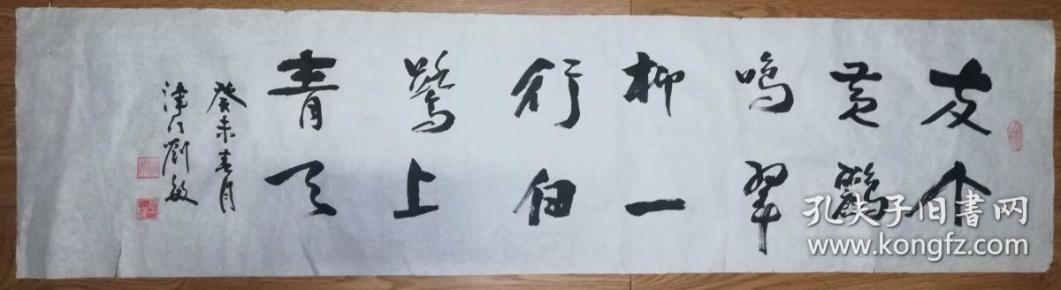 两个
黄鸝
鳴翠
柳一
行白
鷺上
青天
癸未春月
津门劉敏
孔夫子旧書网
www.kongfz.com